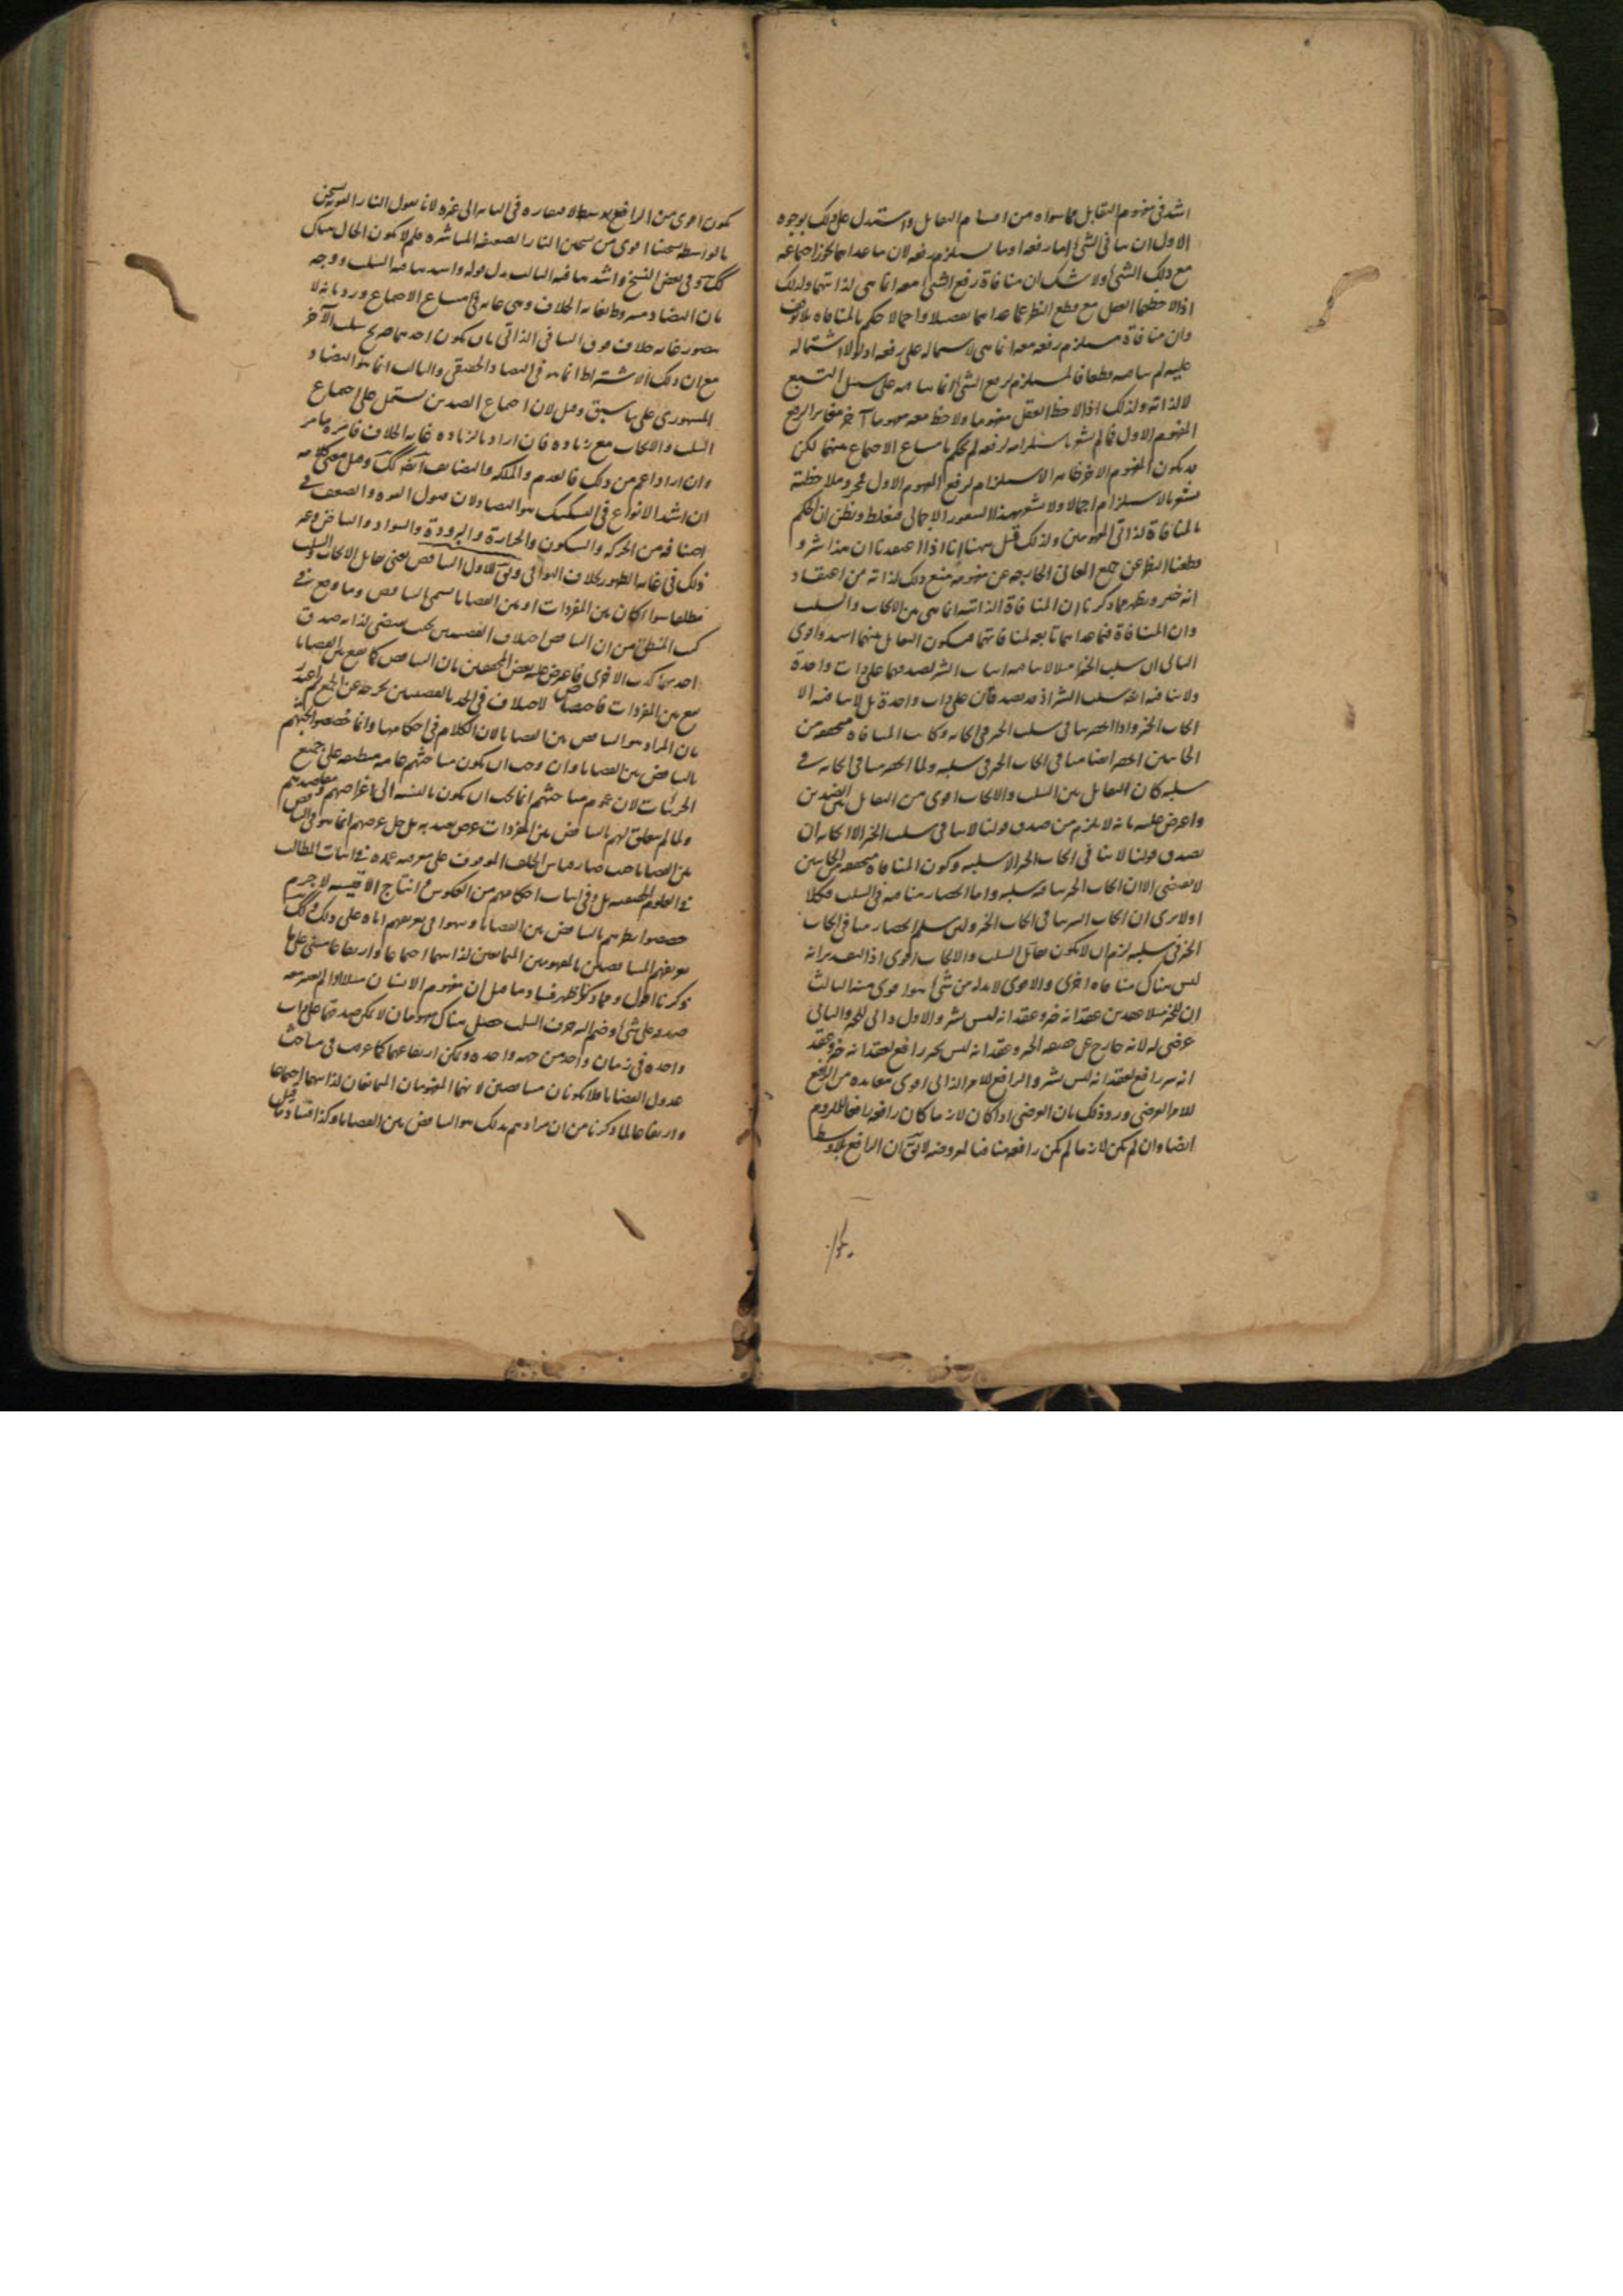 اشد فى مفهوم التقابل مما سواه من اقسام التقابل واستدل على ذلك بوجوه
الاول ان ما ينافى الشئ اما رفعه او ما يستلزم رفعه لان ما عداهما يجوز اجتماعه
مع ذلك الشئ ولا شك ان منافاة رفع الشئ معه انما هى لذاتيهما ولذلك
اذا لاحظهما العقل مع قطع النظر عما عداهما تفصيلا واجمالا حكم بالمنافاة بلا توقف
وان منافاة مستلزم رفعه معه انما هى لاشتماله على رفعه اذ لولا اشتماله
عليه لم ينافه قطعا فالمستلزم لرفع الشئ انما ينافيه على سبيل التبع
لا لذاته ولذلك اذا لاحظ العقل مفهوما ولاحظ معه مفهوما آخر مغاير الرفع
المفهوم الاول فما لم يشعر باستلزامه لرفعه لم يحكم بامتناع الاجتماع بينهما لكن
قد يكون المفهوم الاخر ظاهر الاستلزام لرفع المفهوم الاول فبمجرد ملاحظته
يشعر بالاستلزام اجمالا ولا يشعر بهذا الشعور الاجمالى فيغلط ويظن ان الحكم
بالمنافاة لذاتى المفهومين ولذلك قيل ههنا انا اذا اعتقدنا ان هذا شر و
قطعنا النظر عن جميع المعانى الخارجة عن مفهومه منع ذلك لذاته من اعتقاد
انه خير ويظهر مما ذكرنا ان المنافاة الذاتية انما هى بين الايجاب والسلب
وان المنافاة فيما عداهما تابعة لمنافاتهما فيكون التقابل بينهما اشد واقوى
الثانى ان سلب الخير مثلا لا ينافيه اثبات الشر لصدقهما على ذات واحدة
ولا ينافيه ايضا سلب الشر اذ قد يصدقان على ذات واحدة بل لا ينافيه الا
ايجاب الخير واذا انحصر منافى سلب الخير فى ايجابه وكانت المنافاة متحققة من
الجانبين انحصر ايضا منافى ايجاب الخير فى سلبه ولما انحصر منافى ايجابه فى
سلبه كان التقابل بين السلب والايجاب اقوى من التقابل بين الضدين
واعترض عليه بانه لا يلزم من صدق قولنا لا ينافى سلب الخير الا ايجابه ان
يصدق قولنا لا ينافى ايجاب الخير الا سلبه وكون المنافاة متحققة من الجانبين
لا يقتضى الا ان ايجاب الخير ينافيه سلبه واما انحصار منافيه فى السلب فكلا
اولا يرى ان ايجاب الشر ينافى ايجاب الخير ولئن سلم انحصار منافى ايجاب
الخير فى سلبه لزم ان لا يكون تقابل السلب والايجاب اقوى اذ التقدير انه
ليس هناك منافاة اخرى والاقوى لا بد له من شئ هو اقوى منه الثالث
ان للخير مثلا عقدين عقد انه خير وعقد انه ليس بشر والاول ذاتى للخير والثانى
عرضى له لانه خارج عن حقيقة الخير وعقد انه ليس بخير رافع لعقد انه خير وعقد
انه شر رافع لعقد انه ليس بشر والرافع للامر الذاتى اقوى معاندة من الرافع
للامر العرضى ورد ذلك بان العرضى اذا كان لازما كان رافعه رافعا للملزوم
ايضا وان لم يكن لازما لم يكن رافعه منافيا لمعروضه لا يق ان الرافع بلا وسط
يكون اقوى من الرافع بوسط لافتقاره فى المنافاة الى غيره لانا نقول النار القوية تسخن
بالواسطة تسخينا اقوى من تسخين النار الضعيفة المباشرة فلم لا يكون الحال هناك
كك وفى بعض النسخ واشد منافية الثالث بدل قوله واشد منافيه السلب ووجه
بان التضاد مشروط بغاية الخلاف وهى غاية فى امتناع الاجتماع ورد بانه لا
يتصور غاية خلاف فوق التنافى الذاتى بان يكون احدهما صريح سلب الآخر
مع ان ذلك الاشتراط انما هو فى التضاد الحقيقى والثالث انما هو التضاد
المشهورى على ما سبق وقيل لان اجتماع الضدين يشتمل على اجتماع
السلب والايجاب مع زيادة فان اراد بالزيادة غاية الخلاف فائدة ما مر
وان اراد اعم من ذلك فالعدم والملكة والتضايف ايضا كك وقيل معنى كلامه
ان اشد الانواع فى التشكيك هو التضاد لان قبول القوة والضعف فى
اصنافه من الحركة والسكون والحرارة والبرودة والسواد والبياض وغير
ذلك فى غاية الظهور بخلاف البواقى ويق للاول التناقض يعنى تقابل الايجاب والسلب
مطلقا سواء كان بين المفردات او بين القضايا يسمى التناقض وما وقع فى
كتب المنطق من ان التناقض اختلاف القضيتين بحيث يقتضى لذاته صدق
احدهما كذب الاخرى فاعترض عليه بعض المحققين بان التناقض كما يقع بين القضايا
يقع بين المفردات فاختصاص الاختلاف فى الحد بالقضيتين يخرجه عن الجمع واعتذر
بان المراد هو التناقض بين القضايا لان الكلام فى احكامها وانما خصصوا بحثهم
بالتناقض بين القضايا وان وجب ان يكون مباحثهم عامة منطبقة على جميع
الجزئيات لان عموم مباحثهم انما يجب ان يكون بالنسبة الى اغراضهم ومقاصدهم
ولما لم يتعلق لهم بالتناقض بين المفردات غرض يعتد به بل جل غرضهم انما هو فى التناقض
بين القضايا حيث صار قياس الخلف الموقوف على معرفته عمدة فى اثبات المطالب
فى العلوم الحقيقية بل وفى اثبات احكامهم من العكوس وانتاج الاقيسة لا جرم
خصصوا نظرهم بالتناقض بين القضايا ونبهوا فى تعريفهم اياه على ذلك وكك
تعريفهم المتناقضين بالمفهومين المتمانعين لذاتيهما اجتماعا وارتفاعا مبنى على ما
ذكرنا اقول ومما ذكرنا ظهر فساد ما قيل ان مفهوم الانسان مثلا اذا لم يعتبر معه
صدقه على شئ وضم اليه حرف السلب حصل هناك مفهومان لا يمكن صدقهما على ذات
واحدة فى زمان واحد من جهة واحدة ويمكن ارتفاعهما كما عرفت فى مباحث
عدول القضايا فلا يكونان متناقضين لانهما المفهومان المتمانعان لذاتيهما اجتماعا
وارتفاعا لما ذكرنا من ان مرادهم بذلك هو التناقض بين القضايا وكذا فساد ما قيل